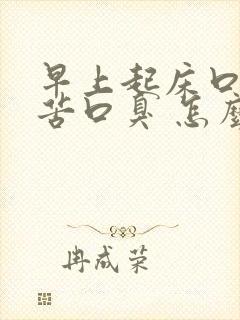 早上起床口
苦口臭 怎麼
冉成荣